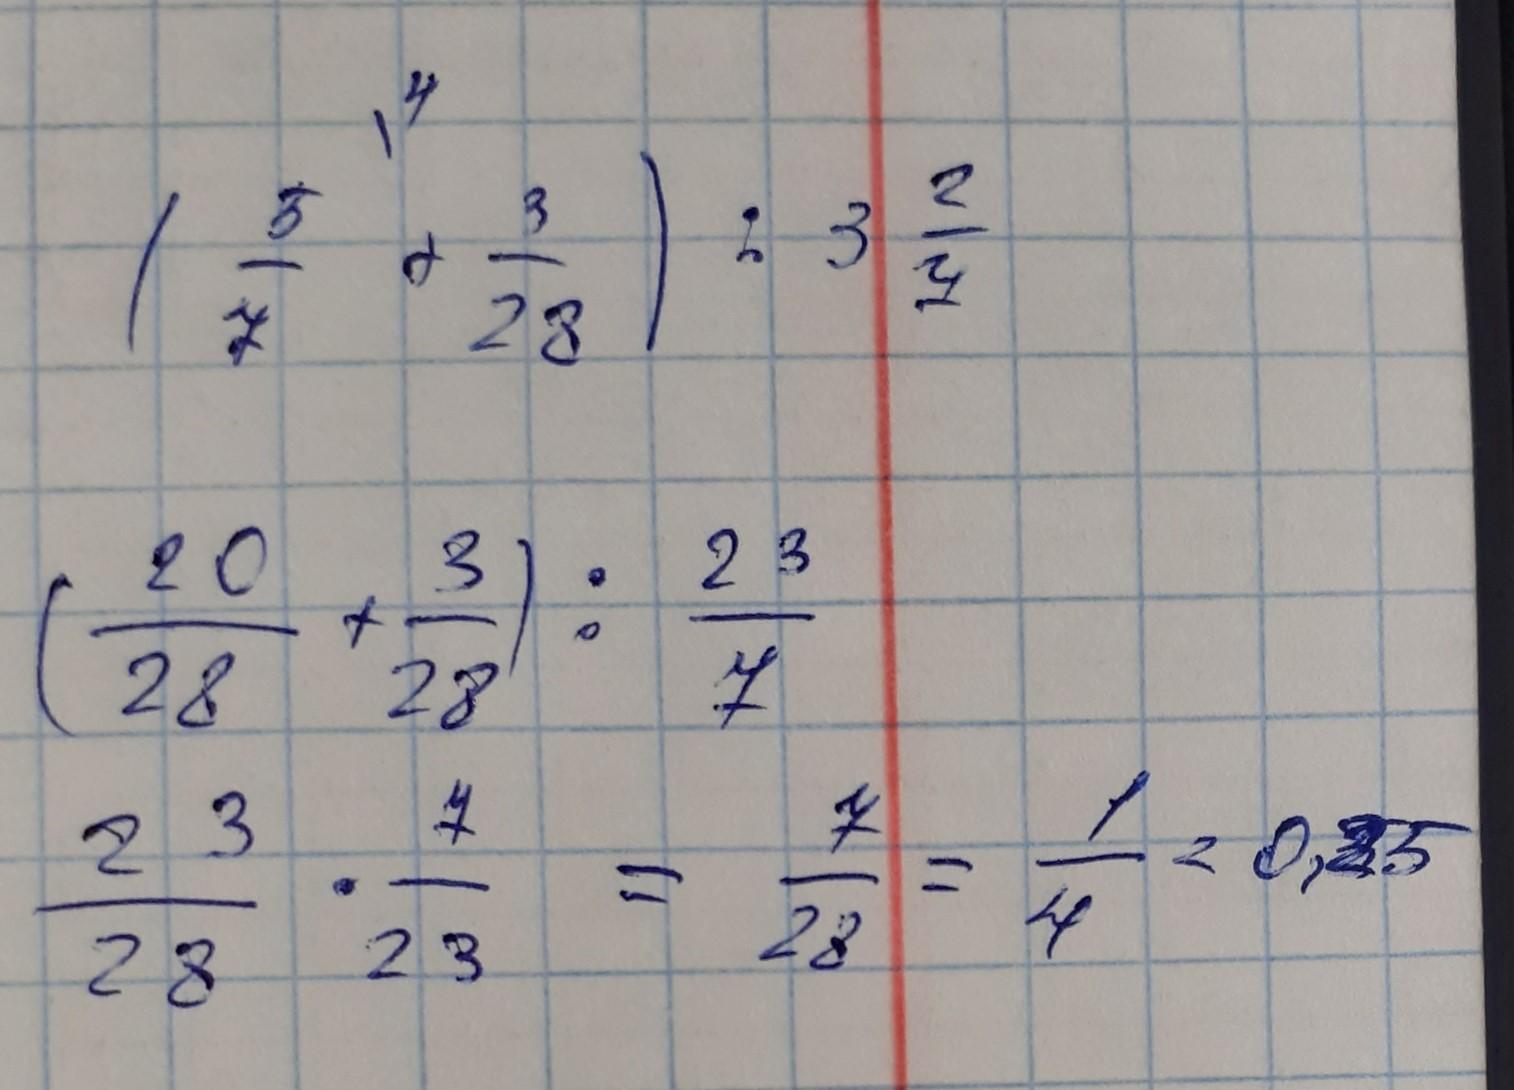 \4
(5/7 + 3/28) : 3 2/7
(20/28 + 3/28) : 23/7
23/28 · 7/23 = 7/28 = 1/4 = 0,25